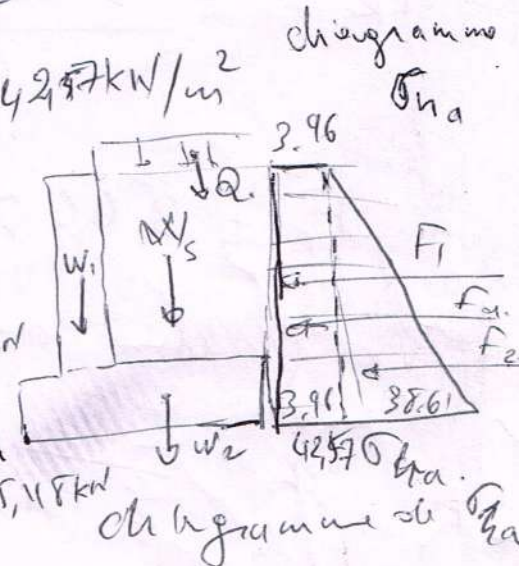 diagramme
42,57 kN/m²
σha
3.96
Q.
W₁
Ws
F1
Fa.
F2
3.96 38.61
W2
42,57 σha.
5,118 kN
diagramme de σha